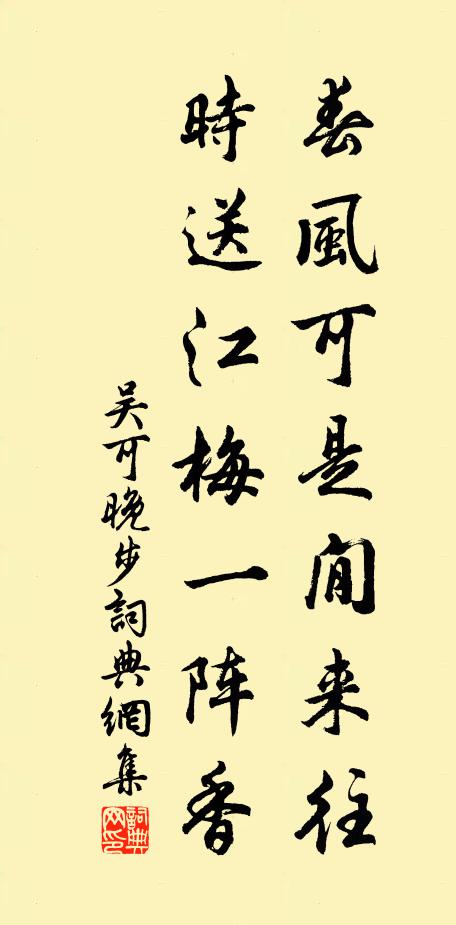 春風可是閒来往
時送江梅一阵香
吴可晚步詞典網集
詞典網印